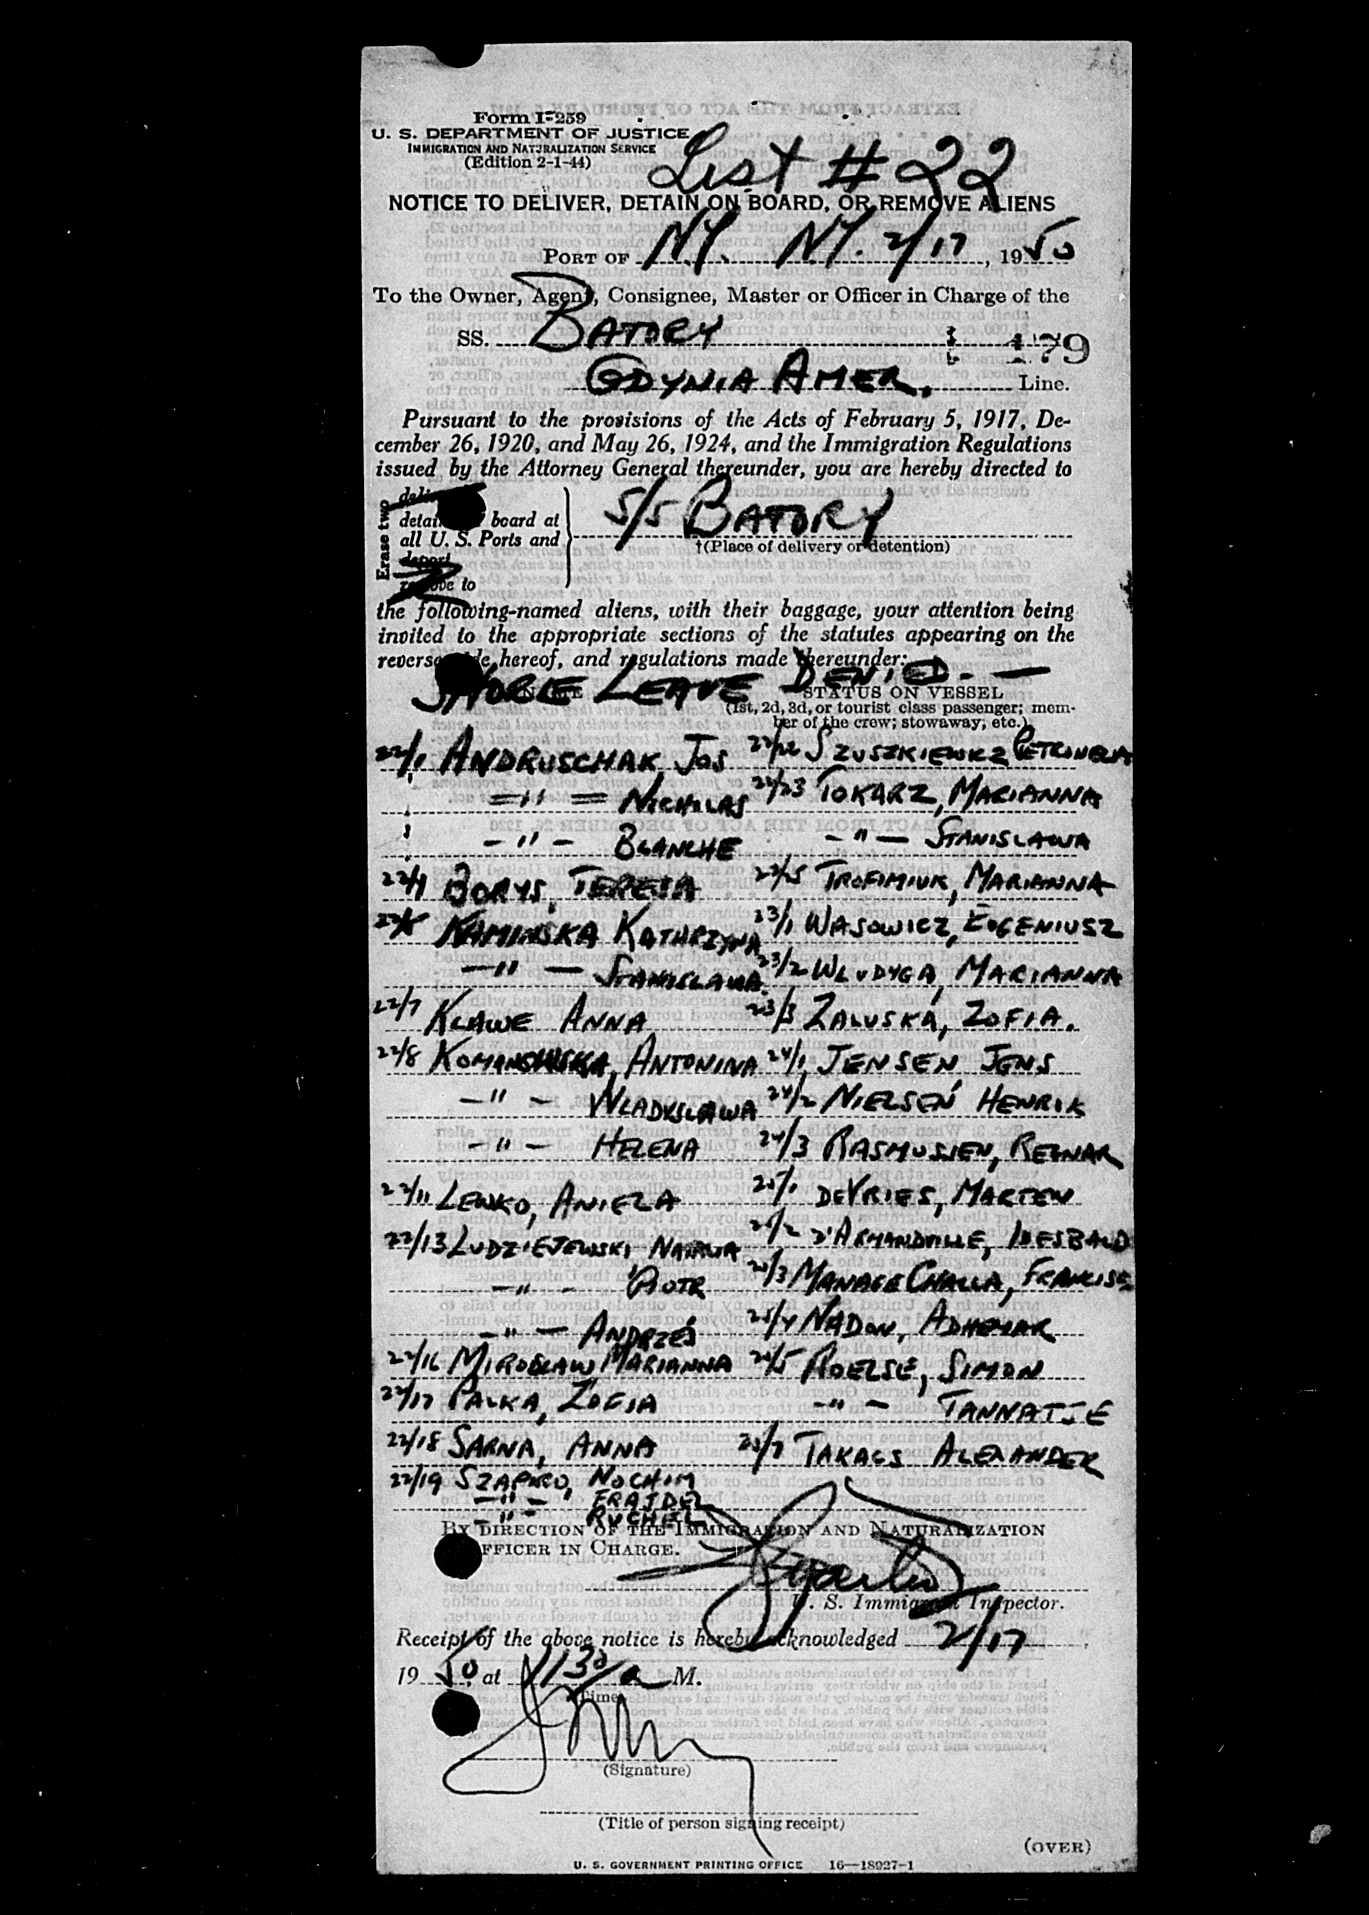 Form I-259
U. S. DEPARTMENT OF JUSTICE
IMMIGRATION AND NATURALIZATION SERVICE
(Edition 2-1-44)
List # 22
NOTICE TO DELIVER, DETAIN ON BOARD, OR REMOVE ALIENS
PORT OF NY. NY. 2/17, 1950
To the Owner, Agent, Consignee, Master or Officer in Charge of the
SS. BATORY 179
GDYNIA AMER. Line.
Pursuant to the provisions of the Acts of February 5, 1917, De-
cember 26, 1920, and May 26, 1924, and the Immigration Regulations
issued by the Attorney General thereunder, you are hereby directed to
Erase two
board at
all U. S. Ports and
deport
to
S/S BATORY
†(Place of delivery or detention)
the following-named aliens, with their baggage, your attention being
invited to the appropriate sections of the statutes appearing on the
hereof, and regulations made thereunder:
SHORE LEAVE DENIED. —
STATUS ON VESSEL
(1st, 2d, 3d, or tourist class passenger; mem-
ber of the crew; stowaway, etc.)
22/1 ANDRUSCHAK, JOS 22/22 SZUSZKIEWICZ PETRONELA
" NICHOLAS 22/23 TOKARZ, MARIANNA
- " - BLANCHE - " - STANISLAWA
22/4 BORYS, TERESA 22/25 TROFIMIUK, MARIANNA
22/5 KAMINSKA KATHRZYNA 23/1 WASOWICZ, EUGENIUSZ
- " - STANISLAWA 23/2 WLUDYGA, MARIANNA
22/7 KLAWE ANNA 23/3 ZALUSKA, ZOFIA.
22/8 ANTONINA 24/1 JENSEN JENS
- " - WLADYSLAWA 24/2 NIELSEN HENRIK
- " - HELENA 24/3 RASMUSSEN, REGNAR
22/11 LEWKO, ANIELA 25/1 DEVRIES, MARTEN
22/13 LUDZIEJEWSKI 25/2 D'ARMANDVILLE, IDESBALD
- " - PIOTR 25/3 MANAGE CHALLA, FRANCISE
- " - ANDRZEJ 25/4 NADON, ADHEMAR
22/16 MIROSLAW MARIANNA 25/5 ROELSE, SIMON
22/17 PALKA, ZOFIA - " - TANNATJE
22/18 SARNA, ANNA 25/7 TAKACS ALEXANDER
22/19 SZAPIRO, NOCHIM
- " - " FRAJDEL
- " - RUCHEL
BY DIRECTION OF THE IMMIGRATION AND NATURALIZATION
OFFICER IN CHARGE.
U. S. Immigrant Inspector.
Receipt of the above notice is hereby acknowledged 2/17,
1950, at 1130 a M.
(Time)
(Signature)
(Title of person signing receipt)
(OVER)
U. S. GOVERNMENT PRINTING OFFICE 16—18927-1